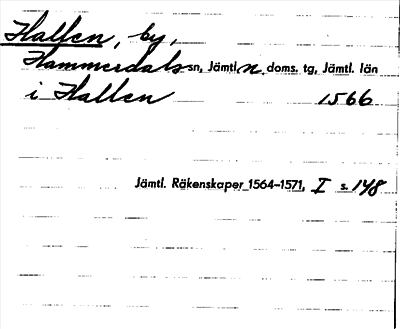 Hallen, by,
Hammerdals sn, Jämtl. n. doms. tg, Jämtl. län
i Hallen 1566
Jämtl. Räkenskaper 1564-1571, I s. 148